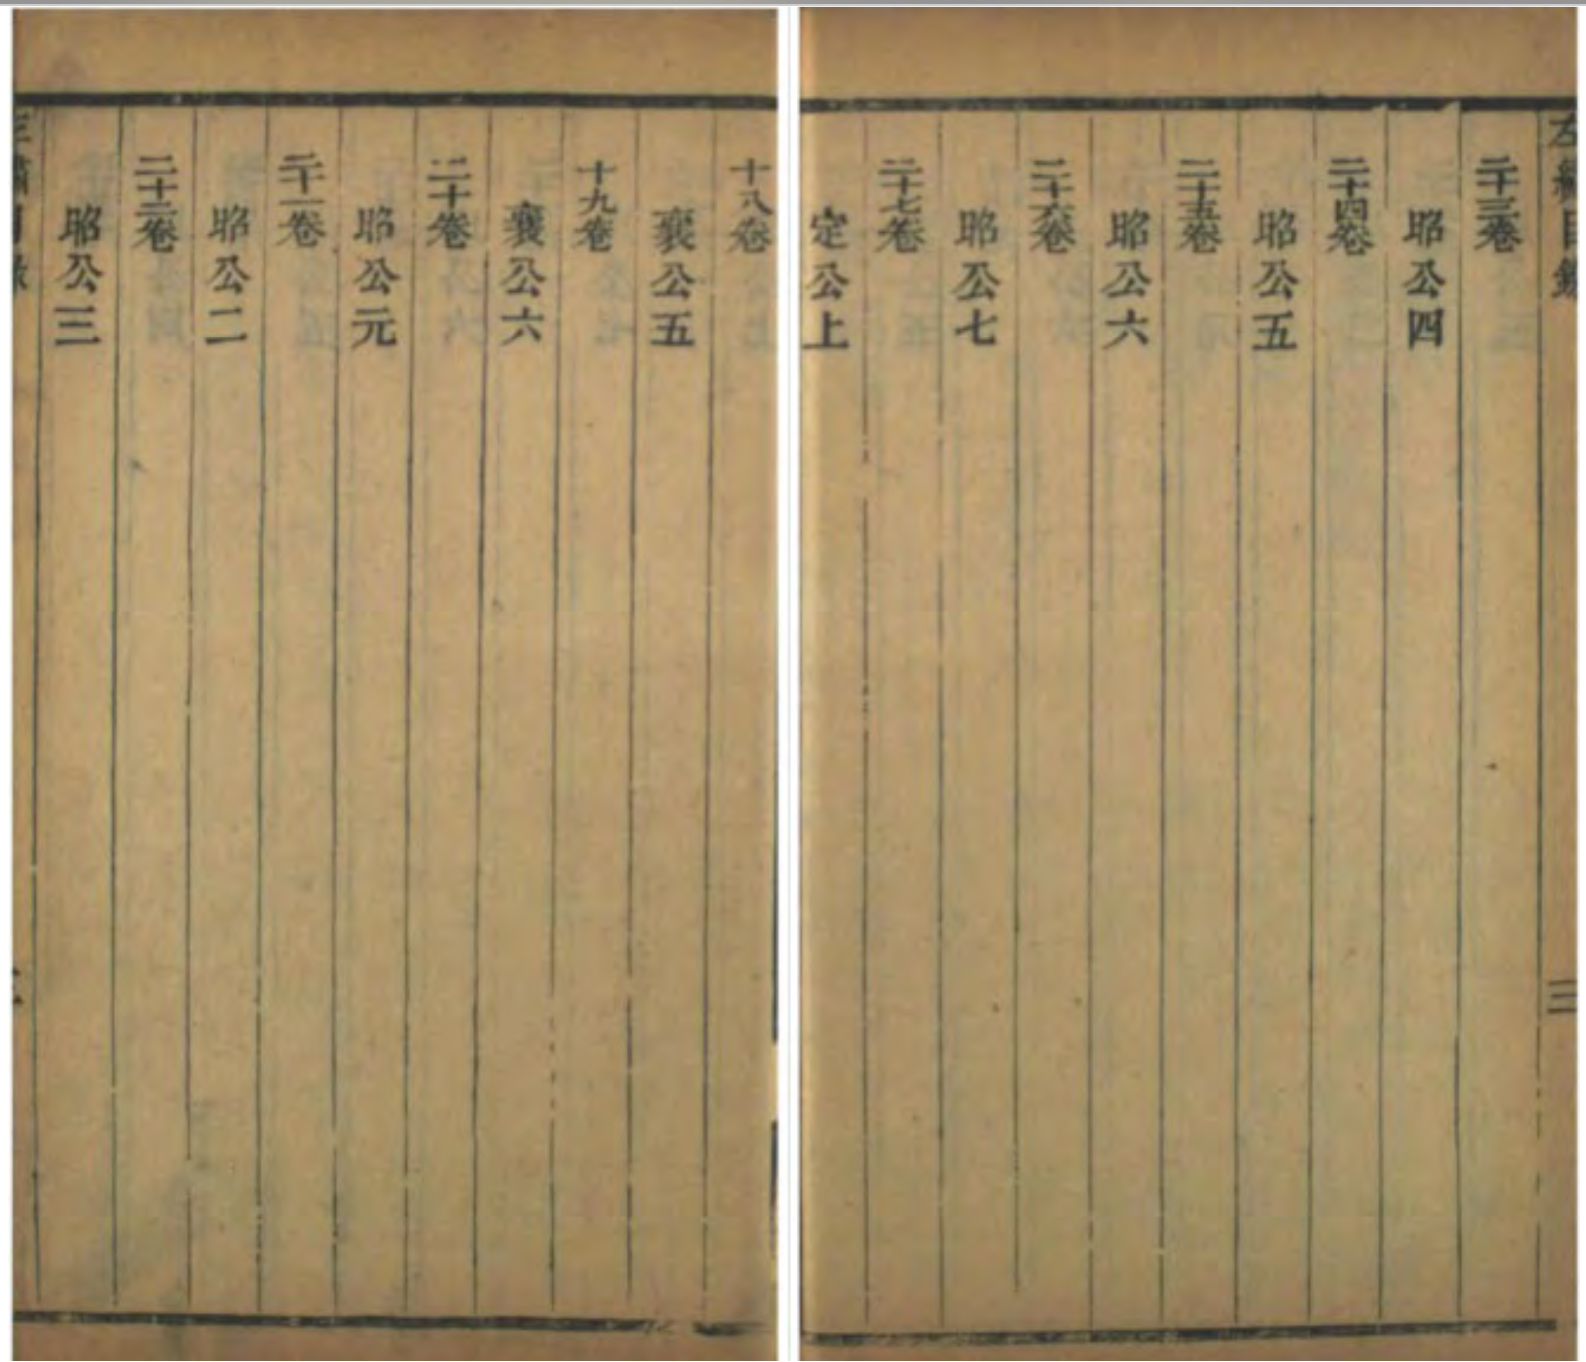 十八卷
襄公五
十九卷
襄公六
二十卷
昭公元
二十一卷
昭公二
二十二卷
昭公三
左繡目錄
三
二十三卷
昭公四
二十四卷
昭公五
二十五卷
昭公六
二十六卷
昭公七
二十七卷
定公上